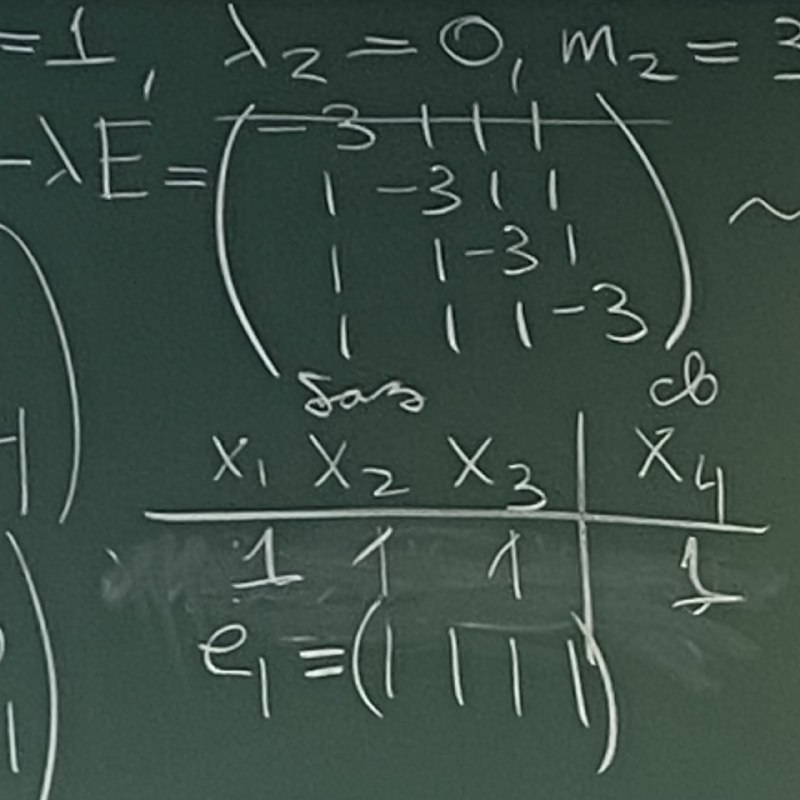 =1, λ₂ = 0, m₂ = 3
-λE = (-3 1 1 1
1 -3 1 1
1 1 -3 1
1 1 1 -3) ~
баз св
x₁ x₂ x₃ | x₄
1 1 1 | 1
e₁ = (1 1 1 1)